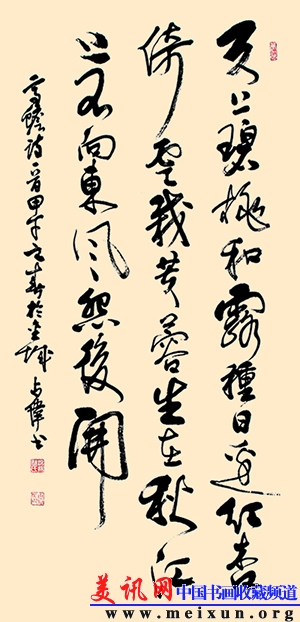 天上碧桃和露種日邊紅杏
倚雲栽芙蓉生在秋江
上不向東風怨後開
高蟾詩一首甲午春於金城偉书
美讯网中国书画收藏频道
www.meixun.org